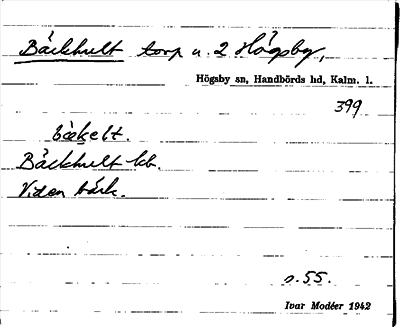 Bäckhult torp u. 2 Högsby,
Högsby sn, Handbörds hd, Kalm. l.
399
bækelt.
Bäckhult kb.
Viden bäck.
s. 55.
Ivar Modéer 1942